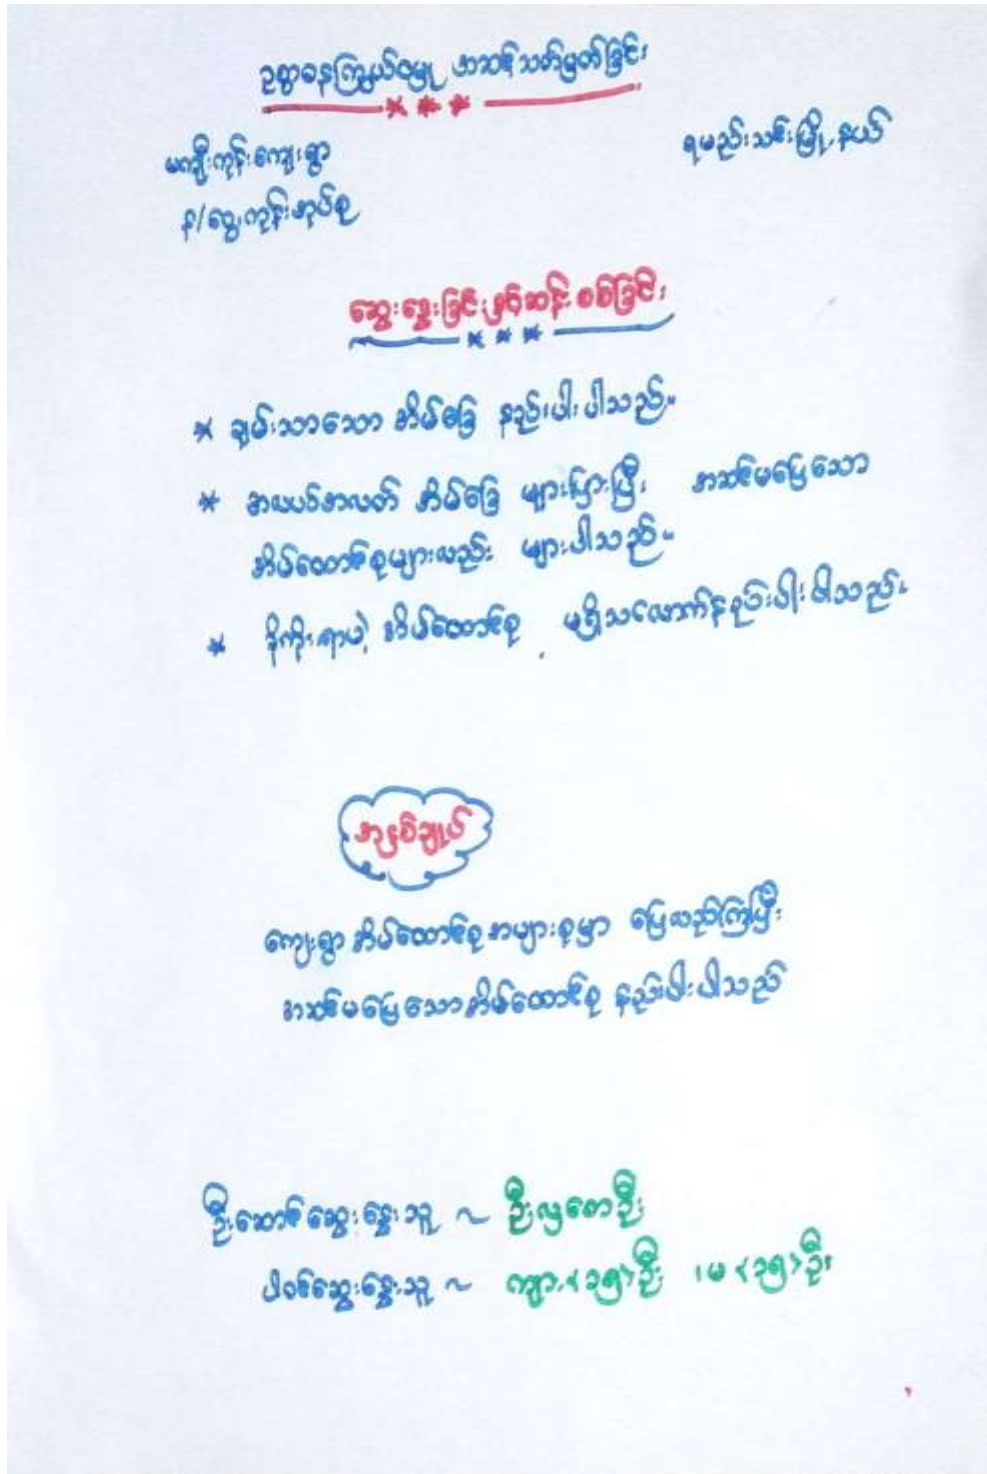 ဥစ္စာဓနကြွယ်ဝမှု အဆင့်သတ်မှတ်ခြင်း
မကျီးကုန်းကျေးရွာ ရမည်းသင်းမြို့နယ်
န/ငွေကုန်းအုပ်စု
ဆွေးနွေးခြင်းနှင့်ဆန်းစစ်ခြင်း
* ချမ်းသာသော အိမ်ခြေ နည်းပါးပါသည်။
* အလယ်အလတ် အိမ်ခြေ များပြားပြီး အဆင်မပြေသော
အိမ်ထောင်စုများလည်း များပါသည်။
* ခိုကိုးရာမဲ့ အိမ်ထောင်စု မရှိသလောက်နည်းပါးပါသည်။
အနှစ်ချုပ်
ကျေးရွာအိမ်ထောင်စုအများစုမှာ ပြေလည်ကြပြီး
အဆင်မပြေသောအိမ်ထောင်စု နည်းပါးပါသည်
ဦးဆောင်ဆွေးနွေးသူ ~ ဦးလှဇော်ဦး
ပါဝင်ဆွေးနွေးသူ ~ ကျား<၁၅>ဦး ၊မ<၃၅>ဦး